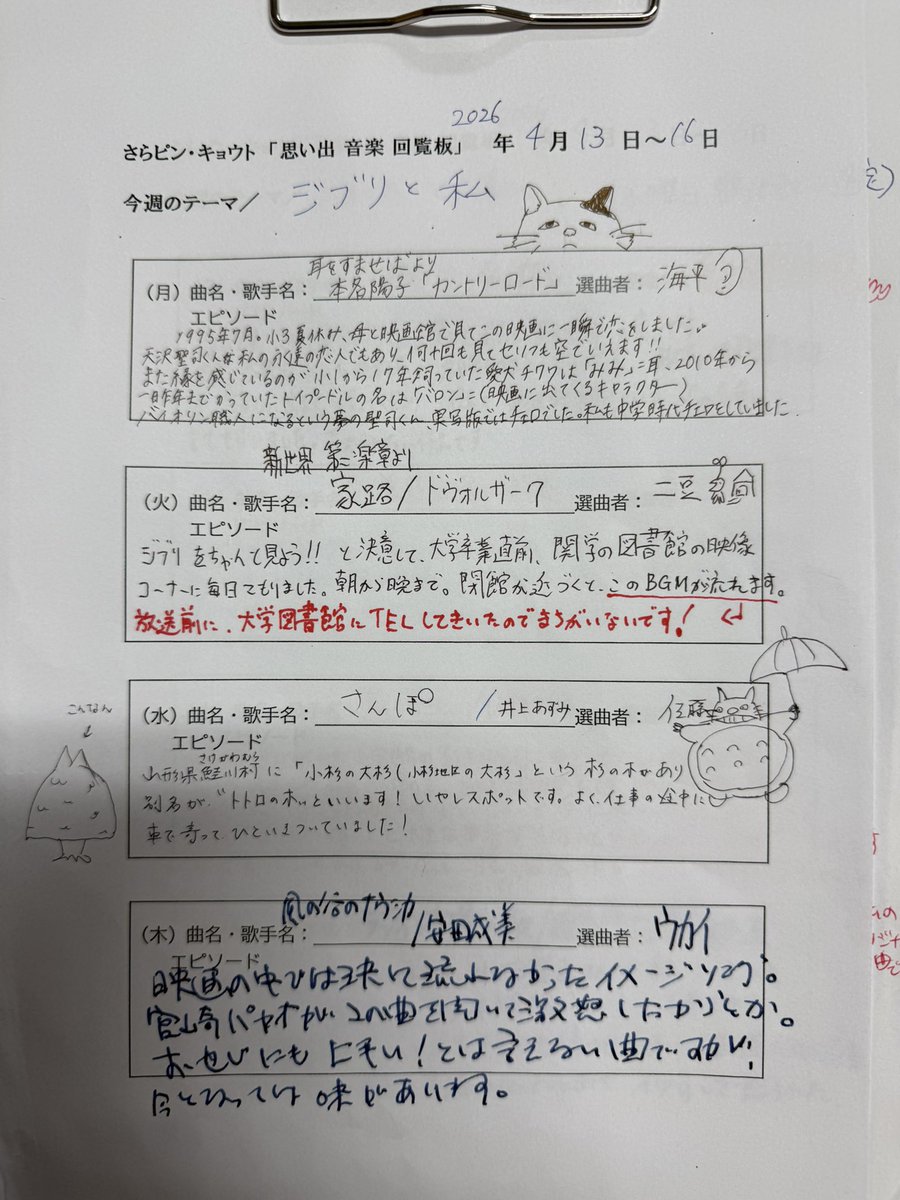 2026
さらピン・キョウト「思い出 音楽 回覧板」 年 4月 13日～16日
今週のテーマ／ ジブリと私
耳をすませばより
（月）曲名・歌手名：本名陽子「カントリーロード」選曲者：海平
エピソード
1995年7月。小3夏休み、母と映画館で見てこの映画に一瞬で恋をしました。
天沢聖司くんは私の永遠の恋人でもあり、何十回も見てセリフも空でいえます!!
また縁を感じているのが小1から17年飼っていた愛犬チワワは「みみ」=耳、2010年から
一昨年までかっていたトイプードルの名は「バロン」=(映画に出てくるキャラクター)
バイオリン職人になるという夢の聖司くん、実写版ではチェロでした。私も中学時代チェロをしていました
新世界 第二楽章より
（火）曲名・歌手名：家路/ドヴォルザーク 選曲者：二豆
エピソード
ジブリをちゃんと見よう!! と決意して、大学卒業直前、関学の図書館の映像
コーナーに毎日こもりました。朝から晩まで。閉館が近づくと、このBGMが流れます。
放送前に、大学図書館にTELしてきいたのでまちがいないです!
（水）曲名・歌手名：さんぽ / 井上あずみ 選曲者：佐藤
エピソード
さけがわむら
山形県鮭川村に「小杉の大杉(小杉地区の大杉」という杉の木があり
別名が、"トトロの木"といいます! いやしスポットです。よく、仕事の途中に
車で寄って ひといきついていました!
こんなん
風の谷のナウシカ
（木）曲名・歌手名：/安田成美 選曲者：ウカイ
エピソード
映画の中では決して流れなかったイメージソング。
宮崎パヤオが、この曲を聞いて 想したかどとか。
おせじにも上手い!とは言えない曲ですが、
今となっては味があります。